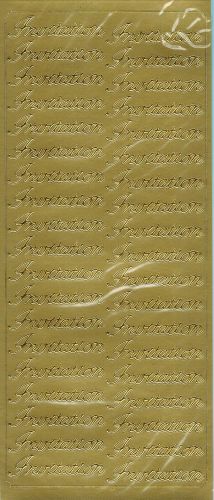 Invitation Invitation
Invitation Invitation
Invitation Invitation
Invitation Invitation
Invitation Invitation
Invitation Invitation
Invitation Invitation
Invitation Invitation
Invitation Invitation
Invitation Invitation
Invitation Invitation
Invitation Invitation
Invitation Invitation
Invitation Invitation
Invitation Invitation
Invitation Invitation
Invitation Invitation
Invitation Invitation
Invitation Invitation